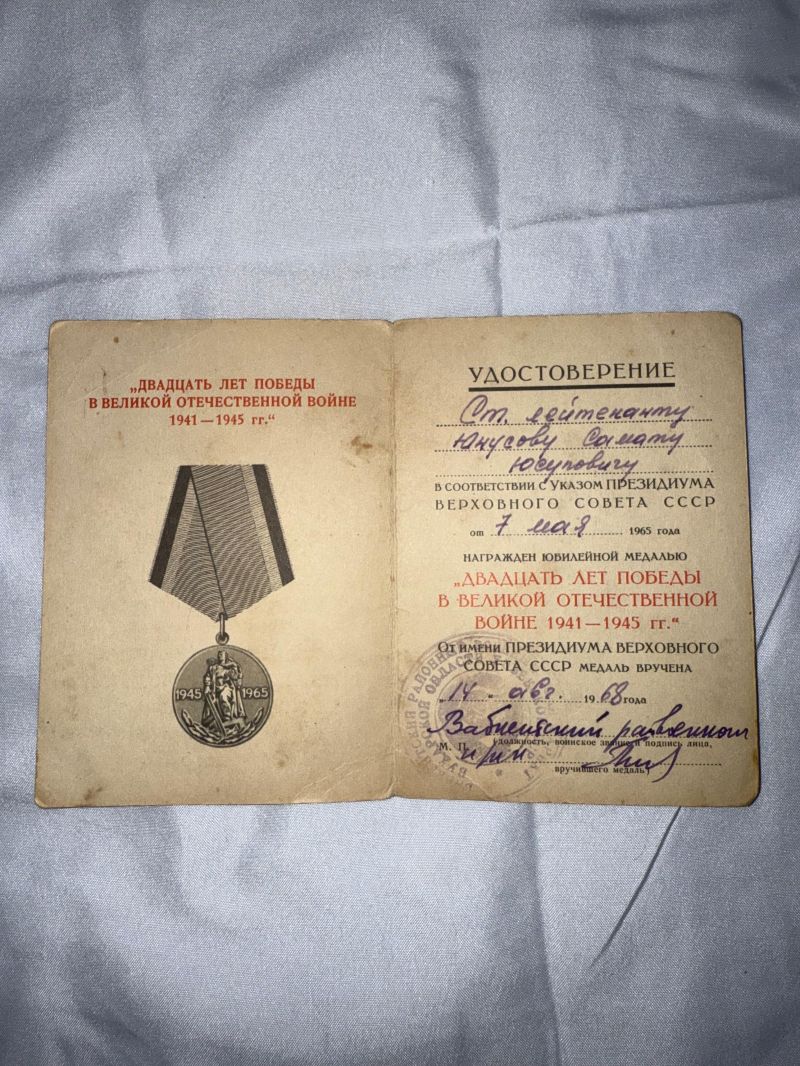 „ДВАДЦАТЬ ЛЕТ ПОБЕДЫ
В ВЕЛИКОЙ ОТЕЧЕСТВЕННОЙ ВОЙНЕ
1941—1945 гг.“
1945 1965
УДОСТОВЕРЕНИЕ
Ст. лейтенанту
Юнусову Самату
Юсуповичу
В СООТВЕТСТВИИ С УКАЗОМ ПРЕЗИДИУМА
ВЕРХОВНОГО СОВЕТА СССР
от 7 мая 1965 года
НАГРАЖДЕН ЮБИЛЕЙНОЙ МЕДАЛЬЮ
„ДВАДЦАТЬ ЛЕТ ПОБЕДЫ
В ВЕЛИКОЙ ОТЕЧЕСТВЕННОЙ
ВОЙНЕ 1941—1945 гг.“
От имени ПРЕЗИДИУМА ВЕРХОВНОГО
СОВЕТА СССР МЕДАЛЬ ВРУЧЕНА
„14 “ авг. 1968 года
М. П. (должность, воинское звание и подпись лица,
вручившего медаль)